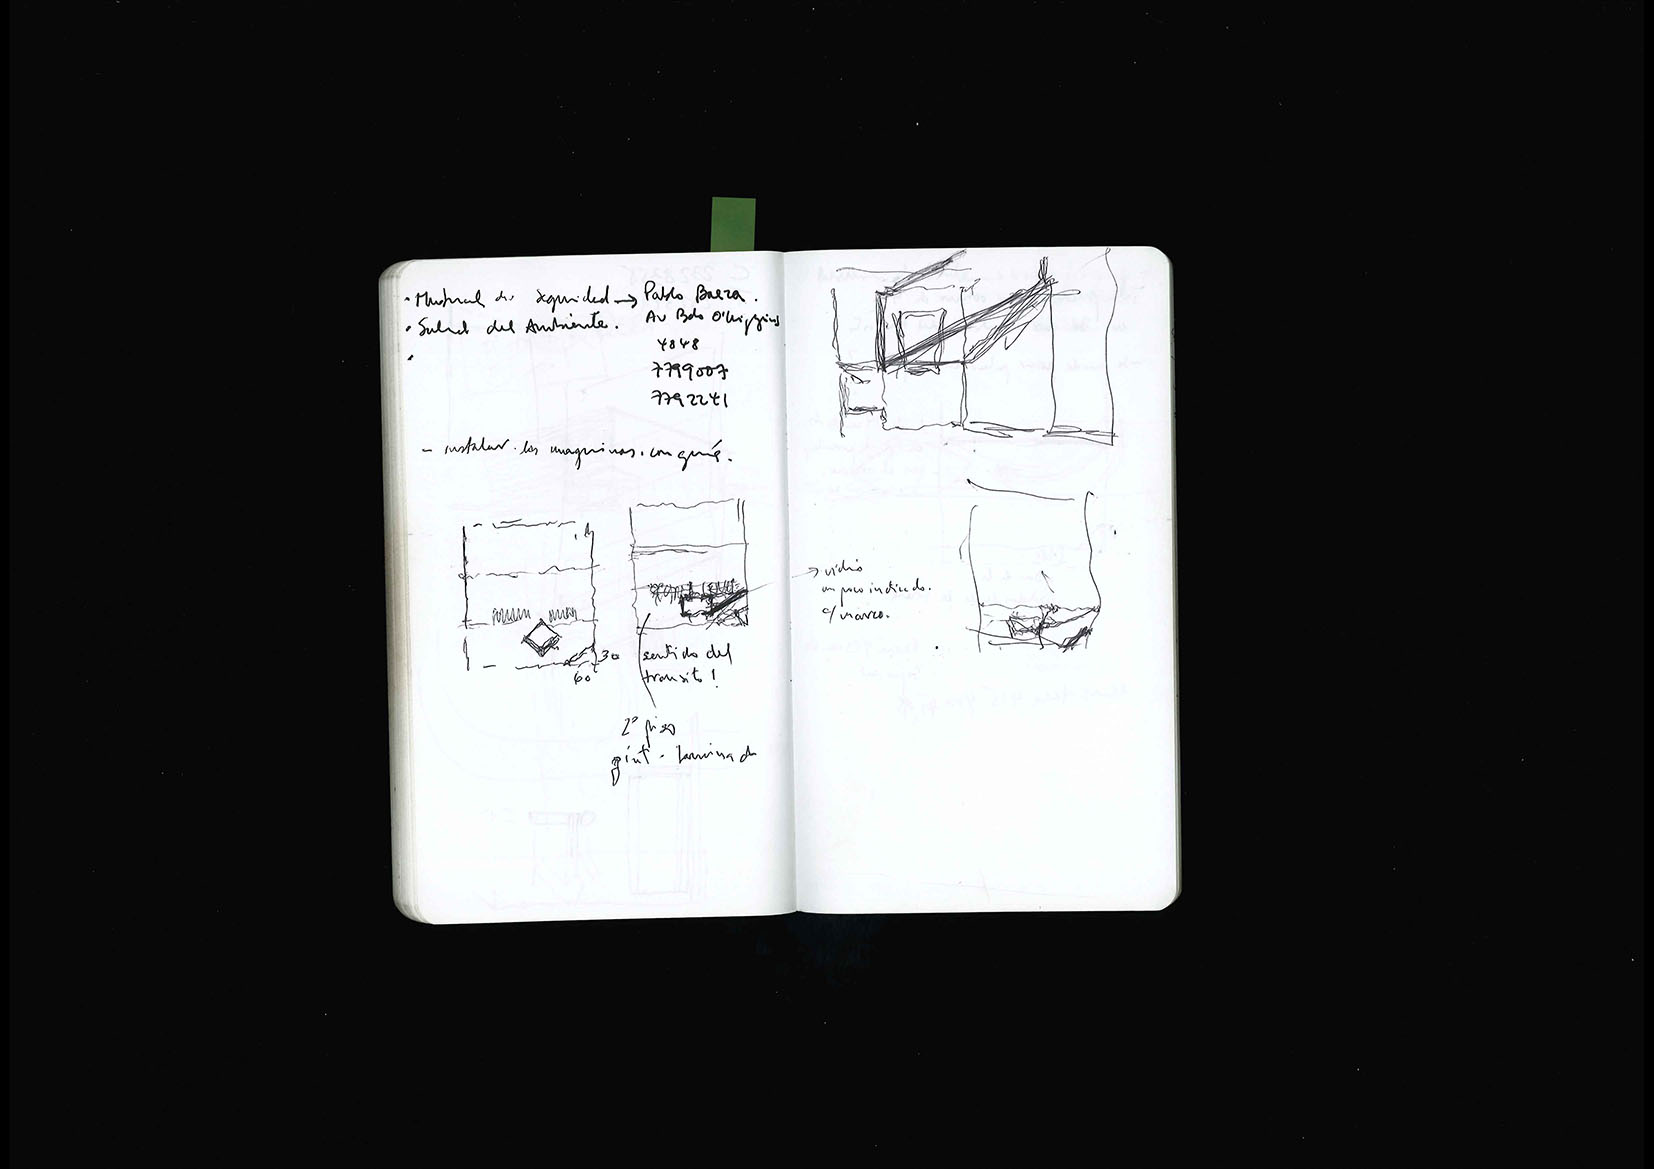 · Mutual de seguridad → Pablo Baeza.
· Salud del Ambiente. Av Bdo O'Higgins
4848
7799007
7792241
- instalar las maquinas. con grúa.
30
60
sentido del
transito!
2° piso
→ vidrio
un poco inclinado.
c/ marco.